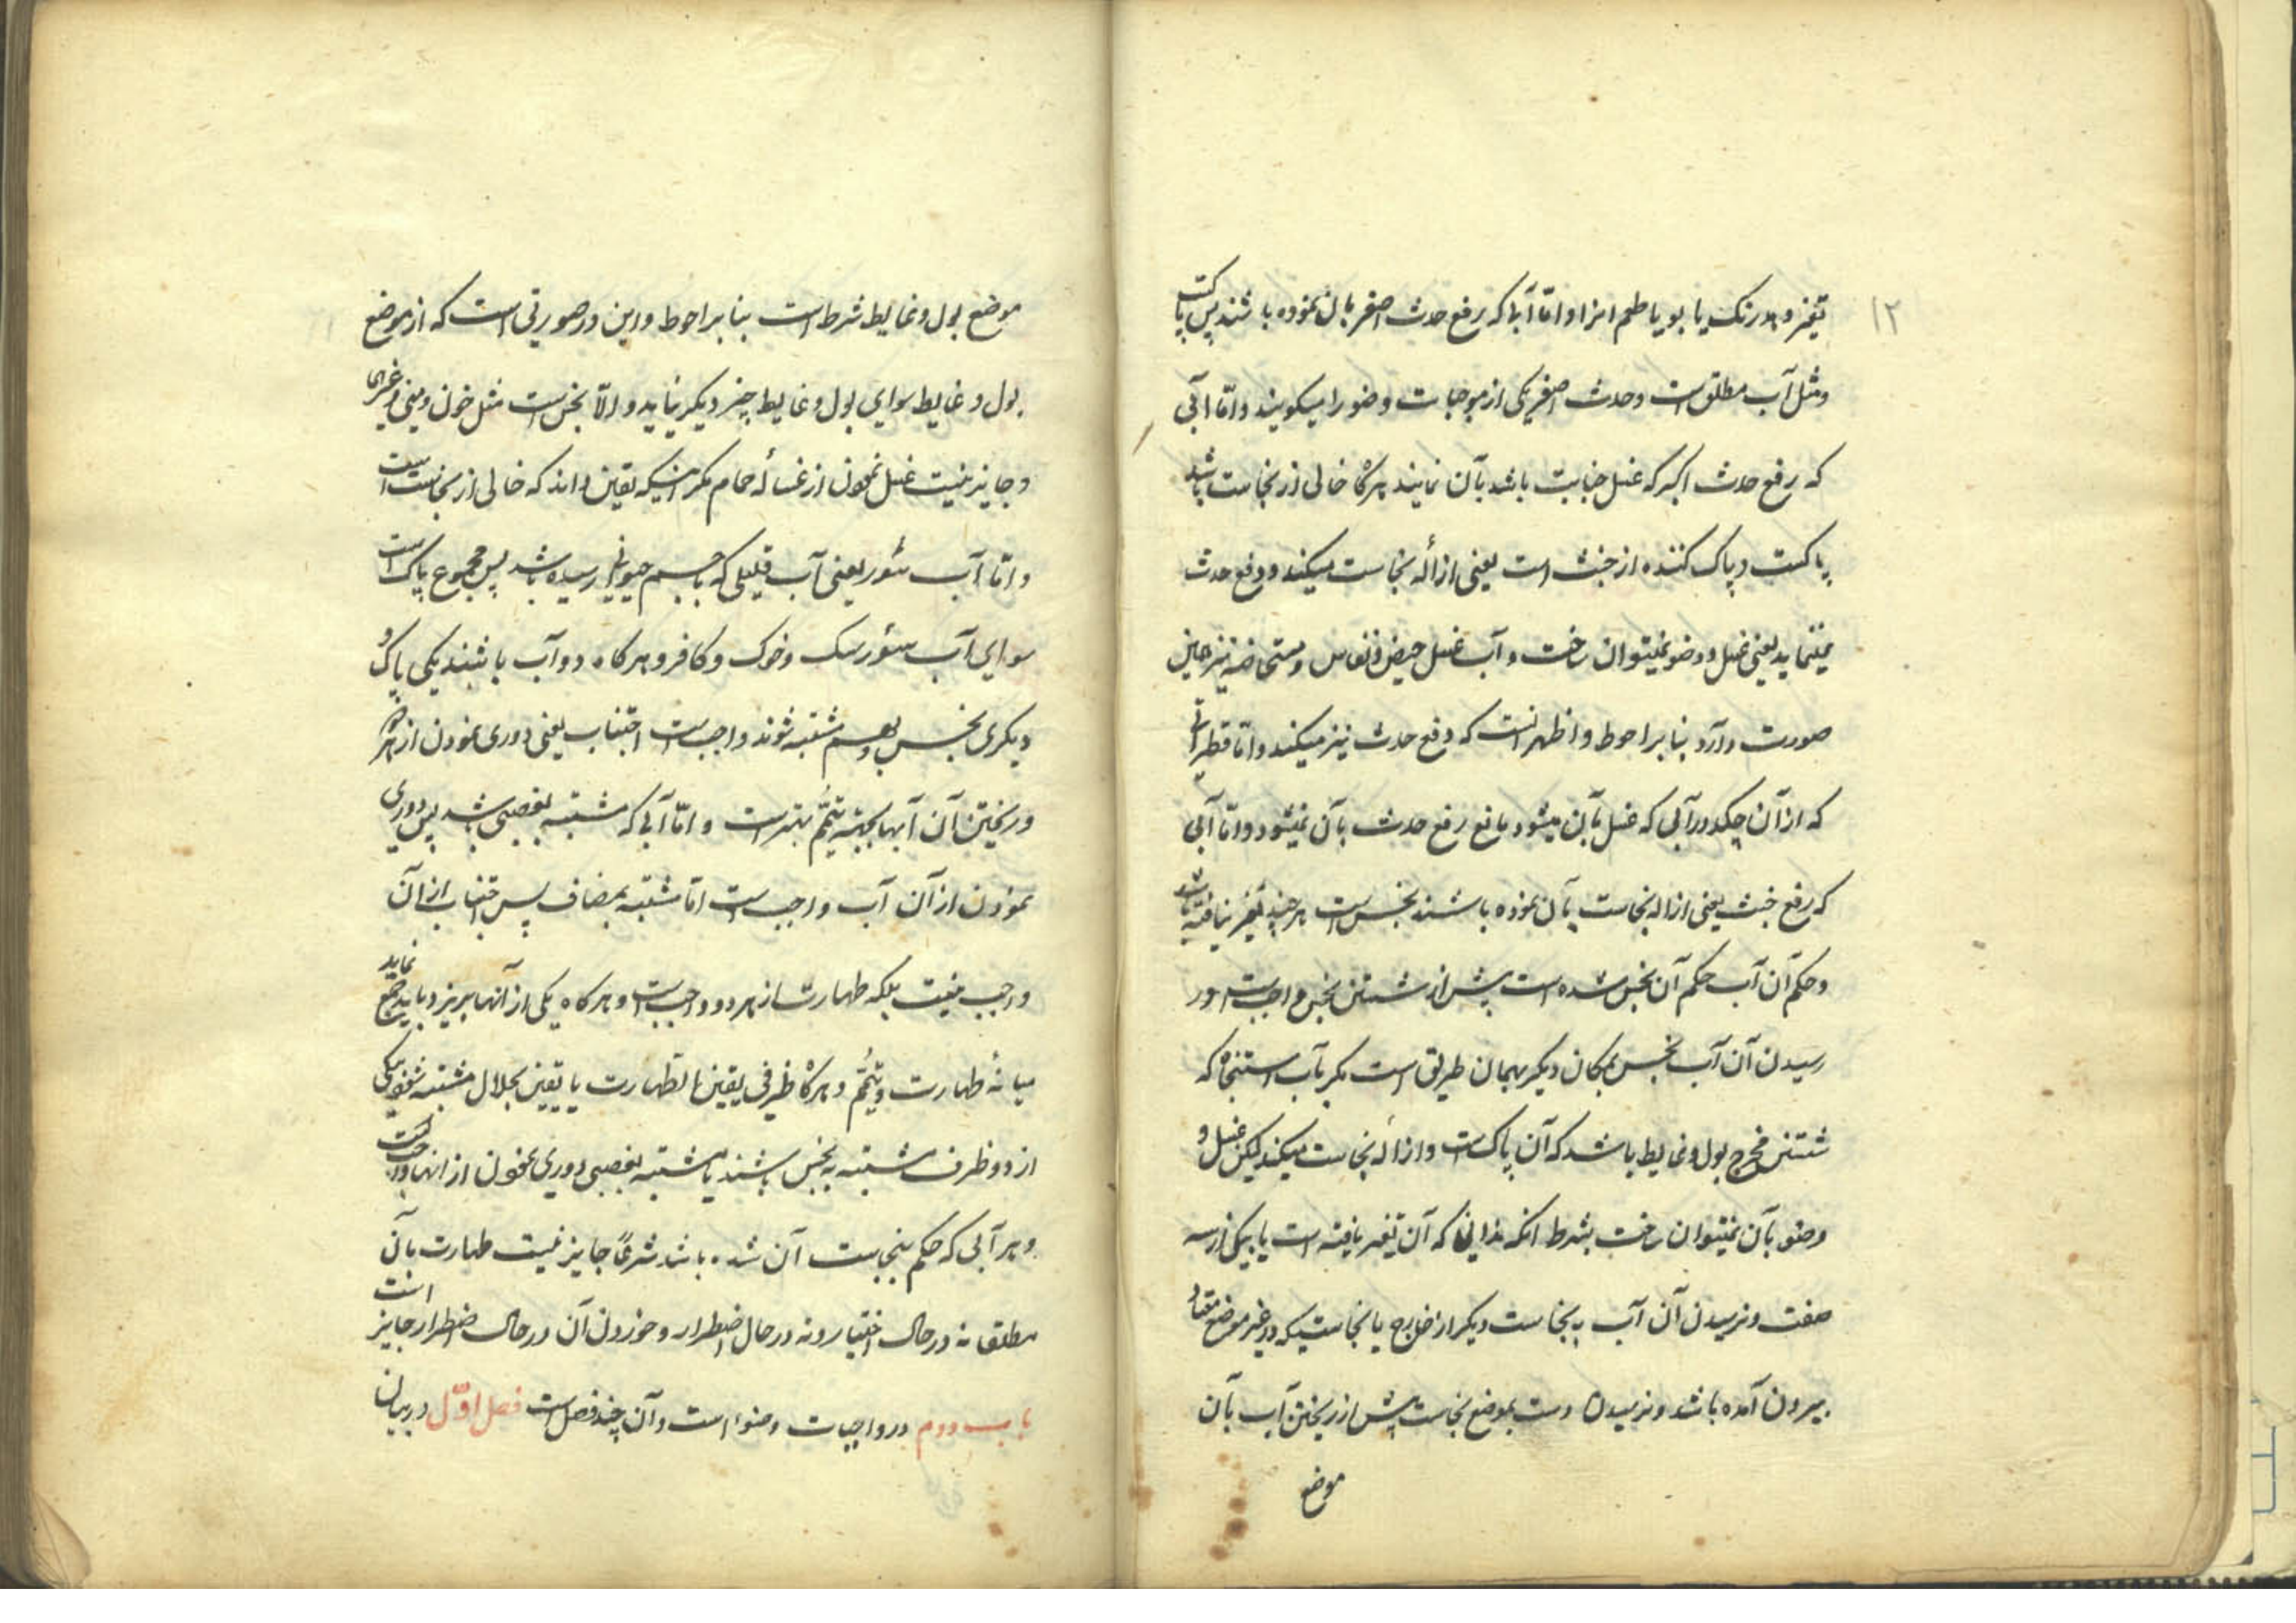 ۱۲
تغیر دهد رنگ یا بو یا طعم انرا و امّا آبیکه رفع حدث اصغر بان نموده باشند پس پاکست
و مثل آب مطلق است و حدث اصغر یکی از موجبات وضو را میکویند و امّا آبی
که رفع حدث اکبر که غسل جنابت باشد بآن نمایند هرکاه خالی از نجاست باشد
پاکست و پاک کننده از خبث است یعنی ازاله نجاست میکند و رفع حدث
نمینماید یعنی غسل و وضو نمیتوان ساخت و آب غسل حیض و نفاس و مستحاضه نیز همین
صورت دارد بنا بر احوط و اظهر انست که رفع حدث نیز میکند و امّا قطراتی
که از آن چکد در آبی که غسل بآن میشود مانع رفع حدث بآن نمیشود و امّا آبی
که رفع خبث یعنی ازاله نجاست بآن نموده باشند نجس است هر چند تغیر نیافته باشد
و حکم آن آب حکم آن نجس شده است پیش از شستن نجس و اجب است در
رسیدن آن آب نجس بمکان دیکر بهمان طریق است مکر آب استنجا که
شستن مخرج بول و غایط باشد که آن پاک است و ازاله نجاست میکند لیکن غسل و
وضو بآن نمیتوان ساخت بشرط انکه ندانی که آن تغیر یافته است یا بیکی از سه
صفت و نرسیدن آن آب به نجاست دیکر از خارج یا نجاستیکه در غیر موضع معتاد
بیرون آمده باشد و نرسیدن دست بموضع نجاست پیش از ریختن آب بآن
موضع
موضع بول و غایط شرط است بنا بر احوط و این در صورتی است که از موضع
بول و غایط سوای بول و غایط چیز دیکر نیاید و الّا نجس است مثل خون و منی و غیرها
و جایز نیست غسل نمودن از غساله حمام مکر اینکه یقین داند که خالی از نجاست است
و امّا آب سؤر یعنی آب قلیلی که بجسم حیوانی رسیده باشد پس مجموع پاک است
سوای آب سؤر سک و خوک و کافر و هرکاه دو آب باشند یکی پاک و
دیکری نجس و بهم مشتبه شوند واجب است اجتناب یعنی دوری نمودن از هر دو
و ریختن آن آبها بجهته تیمّم بهتر است و امّا آبی که مشتبه بغصبی باشد پس دوری
نمودن از آن آب واجب است امّا مشتبه بمضاف پس اجتناب از آن
واجب نیست بلکه طهارت از هر دو واجب است و هرکاه یکی از آنها بریزد باید جمع نماید
میانه طهارت و تیمّم و هرکاه ظرفی یقین الطهارت یا یقین بحلال مشتبه شود بیکی
از دو ظرف مشتبه به نجس باشند یا مشتبه بغصبی دوری نمودن از انها واجب است
و هر آبی که حکم بنجاست آن شده باشد شرعًا جایز نیست طهارت بآن
مطلقا نه در حال اختیار و نه در حال اضطرار و خوردن آن در حال اضطرار جایز است
باب دوم در واجبات وضو است و آن چند فصل است فصل اوّل در بیان